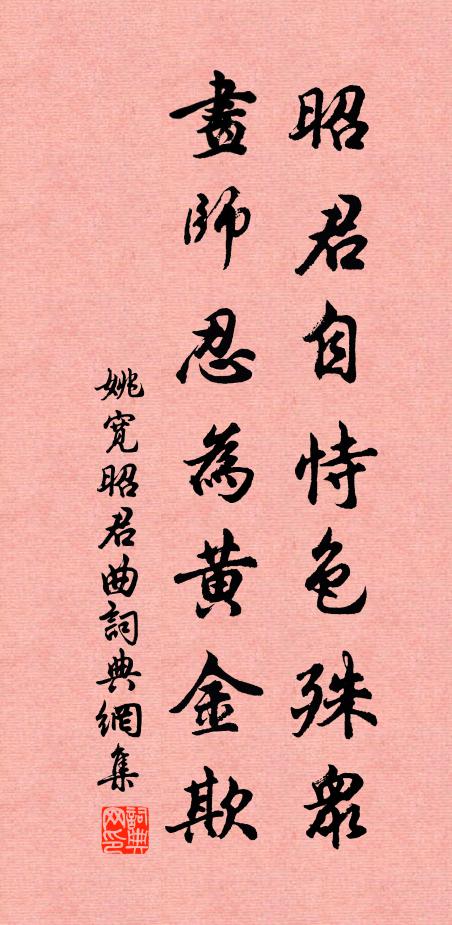 昭君自恃色殊眾
畫師忍為黃金欺
姚寬昭君曲詞典網集
詞典网印